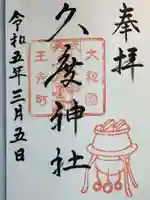 奉拝
久度神社
大和国
王寺町
令和五年三月五日